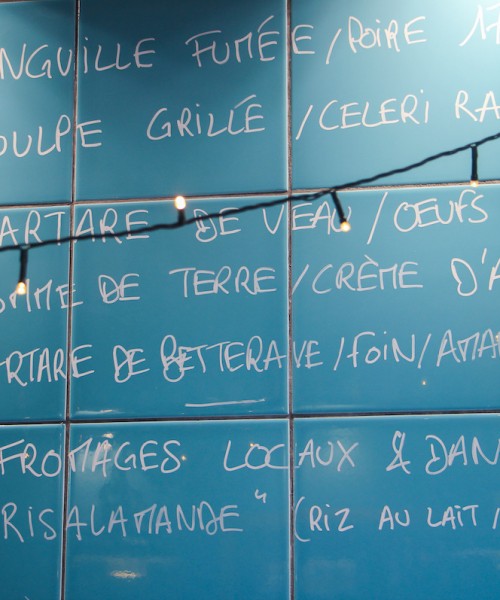 NGUILLE FUMÉE / POIRE 17
OULPE GRILLÉ / CELERI RA
ARTARE DE VEAU / OEUFS
OMME DE TERRE / CRÈME D'A
RTARE DE BETTERAVE / FOIN / AMA
FROMAGES LOCAUX & DAN
RISALAMANDE" (RIZ AU LAIT,